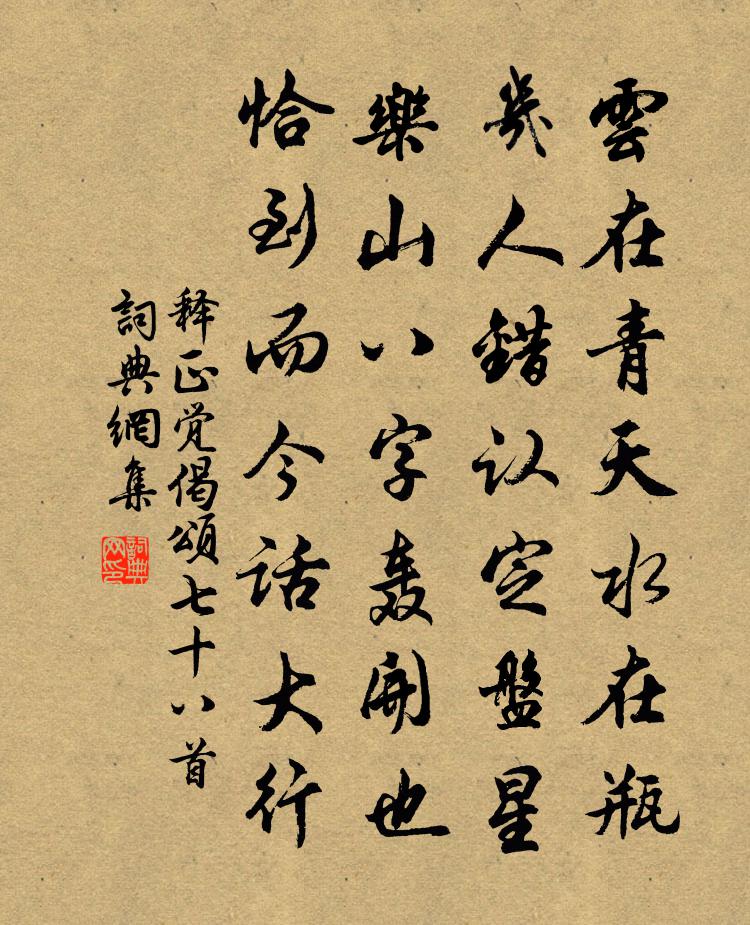 雲在青天水在瓶
幾人錯认定盤星
樂山八字轰開也
恰到而今话大行
释正觉偈頌七十八首
詞典網集
詞典网印